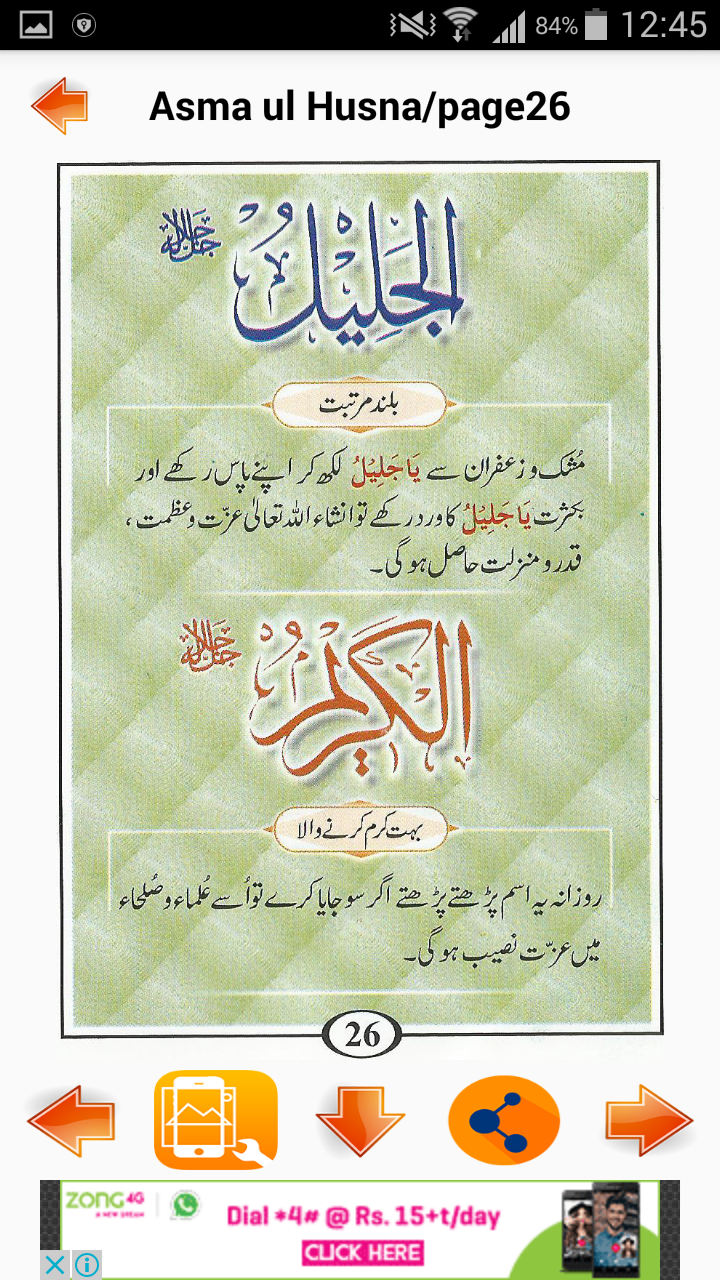 84% 12:45
Asma ul Husna/page26
الجَلِيلُ جل جلالہ
بلند مرتبت
مُشک و زعفران سے يَا جَلِيْلُ لکھ کر اپنے پاس رکھے اور
بکثرت يَا جَلِيْلُ کا ورد رکھے تو انشاء اللہ تعالیٰ عزّت و عظمت ،
قدر و منزلت حاصل ہو گی۔
الكَرِيمُ جل جلالہ
بہت کرم کرنے والا
روزانہ یہ اسم پڑھتے پڑھتے اگر سو جایا کرے تو اُسے عُلماء و صُلحاء
میں عزّت نصیب ہو گی۔
26
ZONG 4G
A NEW DREAM
Dial *4# @ Rs. 15+t/day
CLICK HERE